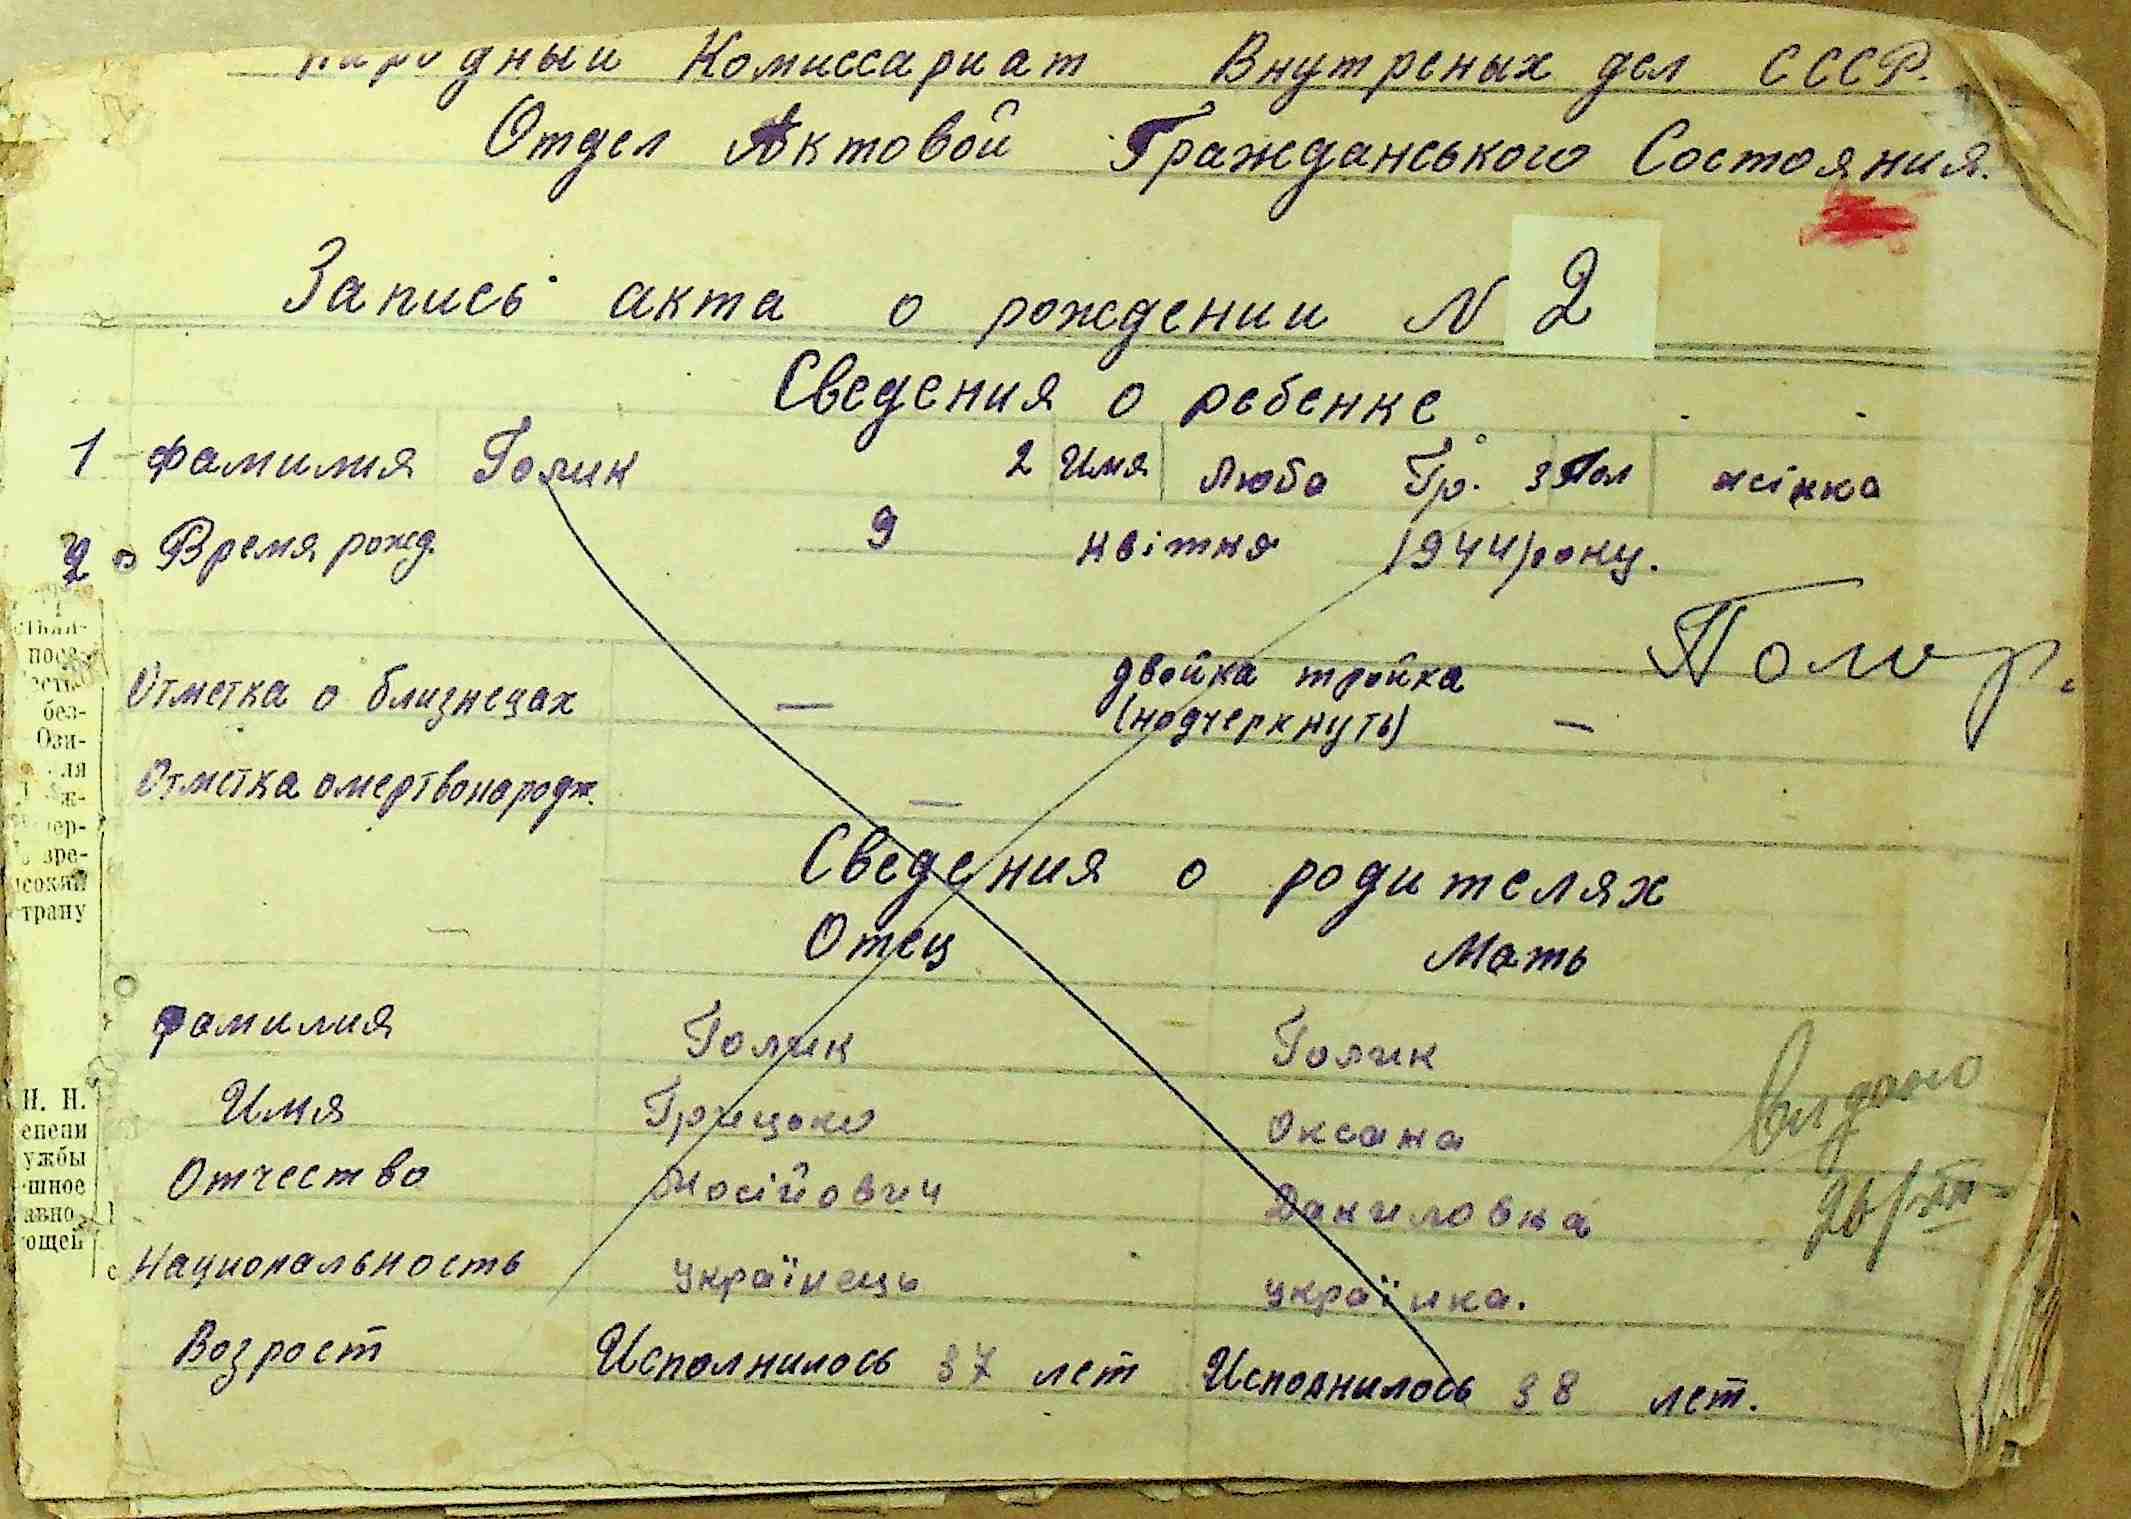 Народный Комиссариат Внутреных дел СССР.
Отдел Актовой Гражданського Состояния.
Запись акта о рождении N 2
Сведения о ребенке
1 Фамилия Голик 2 Имя Люба Гр. 3 Пол жінка
Время рожд. 9 квітня 1944 року.
Отметка о близнецах — двойка тройка
(подчеркнуть) —
Помер.
Отметка омертвонародж. —
Сведения о родителях
Отец Мать
Фамилия Голик Голик
Имя Грицько Оксана
Отчество Мосійович Даниловна
Видано
Национальность українець українка.
Возрост Исполнилось 37 лет Исполнилось 38 лет.
без-
Ози-
ля
зре-
трану
Н. Н.
ужбы
шное
авно
ющей